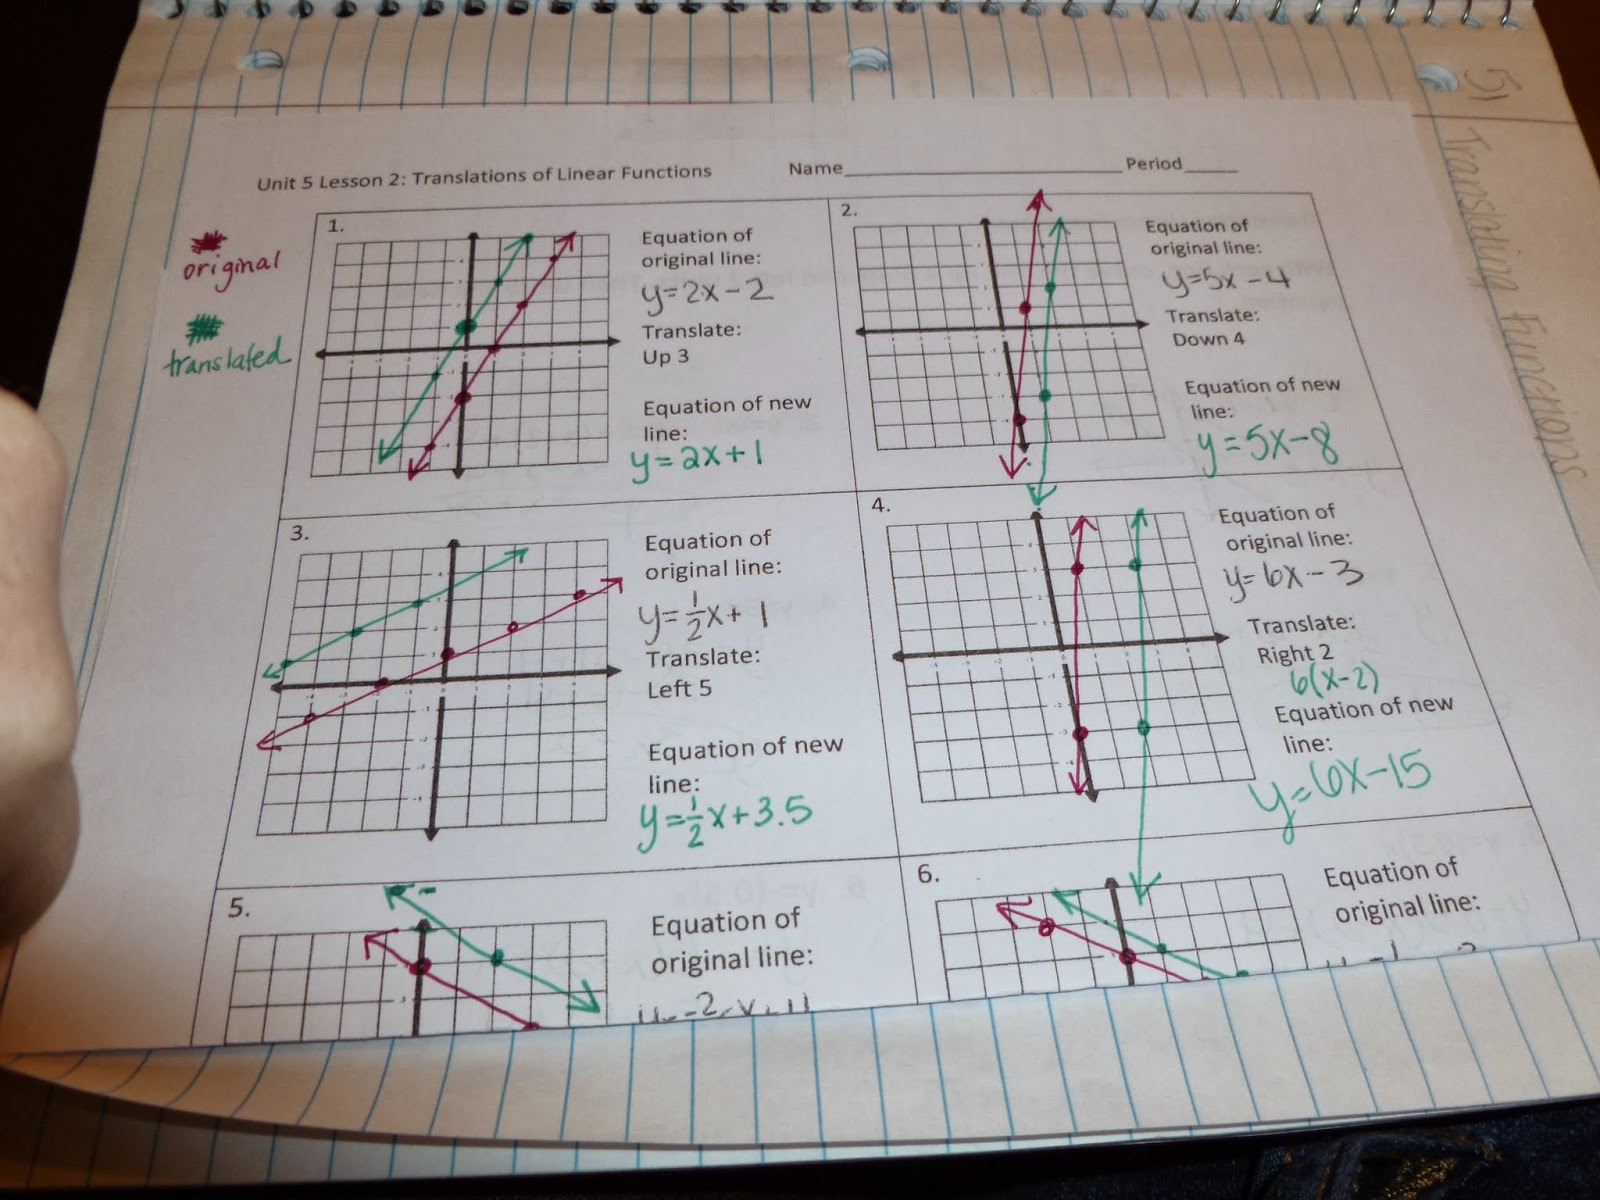 51
Translating Functions
Unit 5 Lesson 2: Translations of Linear Functions Name Period
original
translated
1.
Equation of
original line:
y=2x-2
Translate:
Up 3
Equation of new
line:
y=2x+1
2.
Equation of
original line:
y=5x-4
Translate:
Down 4
Equation of new
line:
y=5x-8
3.
Equation of
original line:
y=1/2x+1
Translate:
Left 5
Equation of new
line:
y=1/2x+3.5
4.
Equation of
original line:
y=6x-3
Translate:
Right 2
6(x-2)
Equation of new
line:
y=6x-15
5.
Equation of
original line:
6.
Equation of
original line: